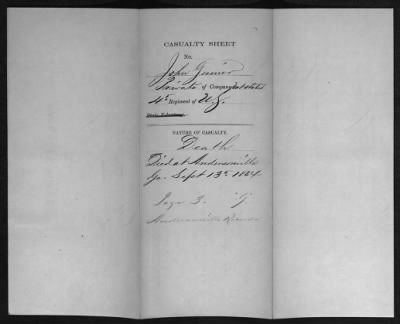 CASUALTY SHEET
No.
John
Private of Company not stated
4th Regiment of U.S.
State Volunteers
NATURE OF CASUALTY.
Death
Died at Andersonville
Ga. Sept 13th 1864
Page 3.
Andersonville Records